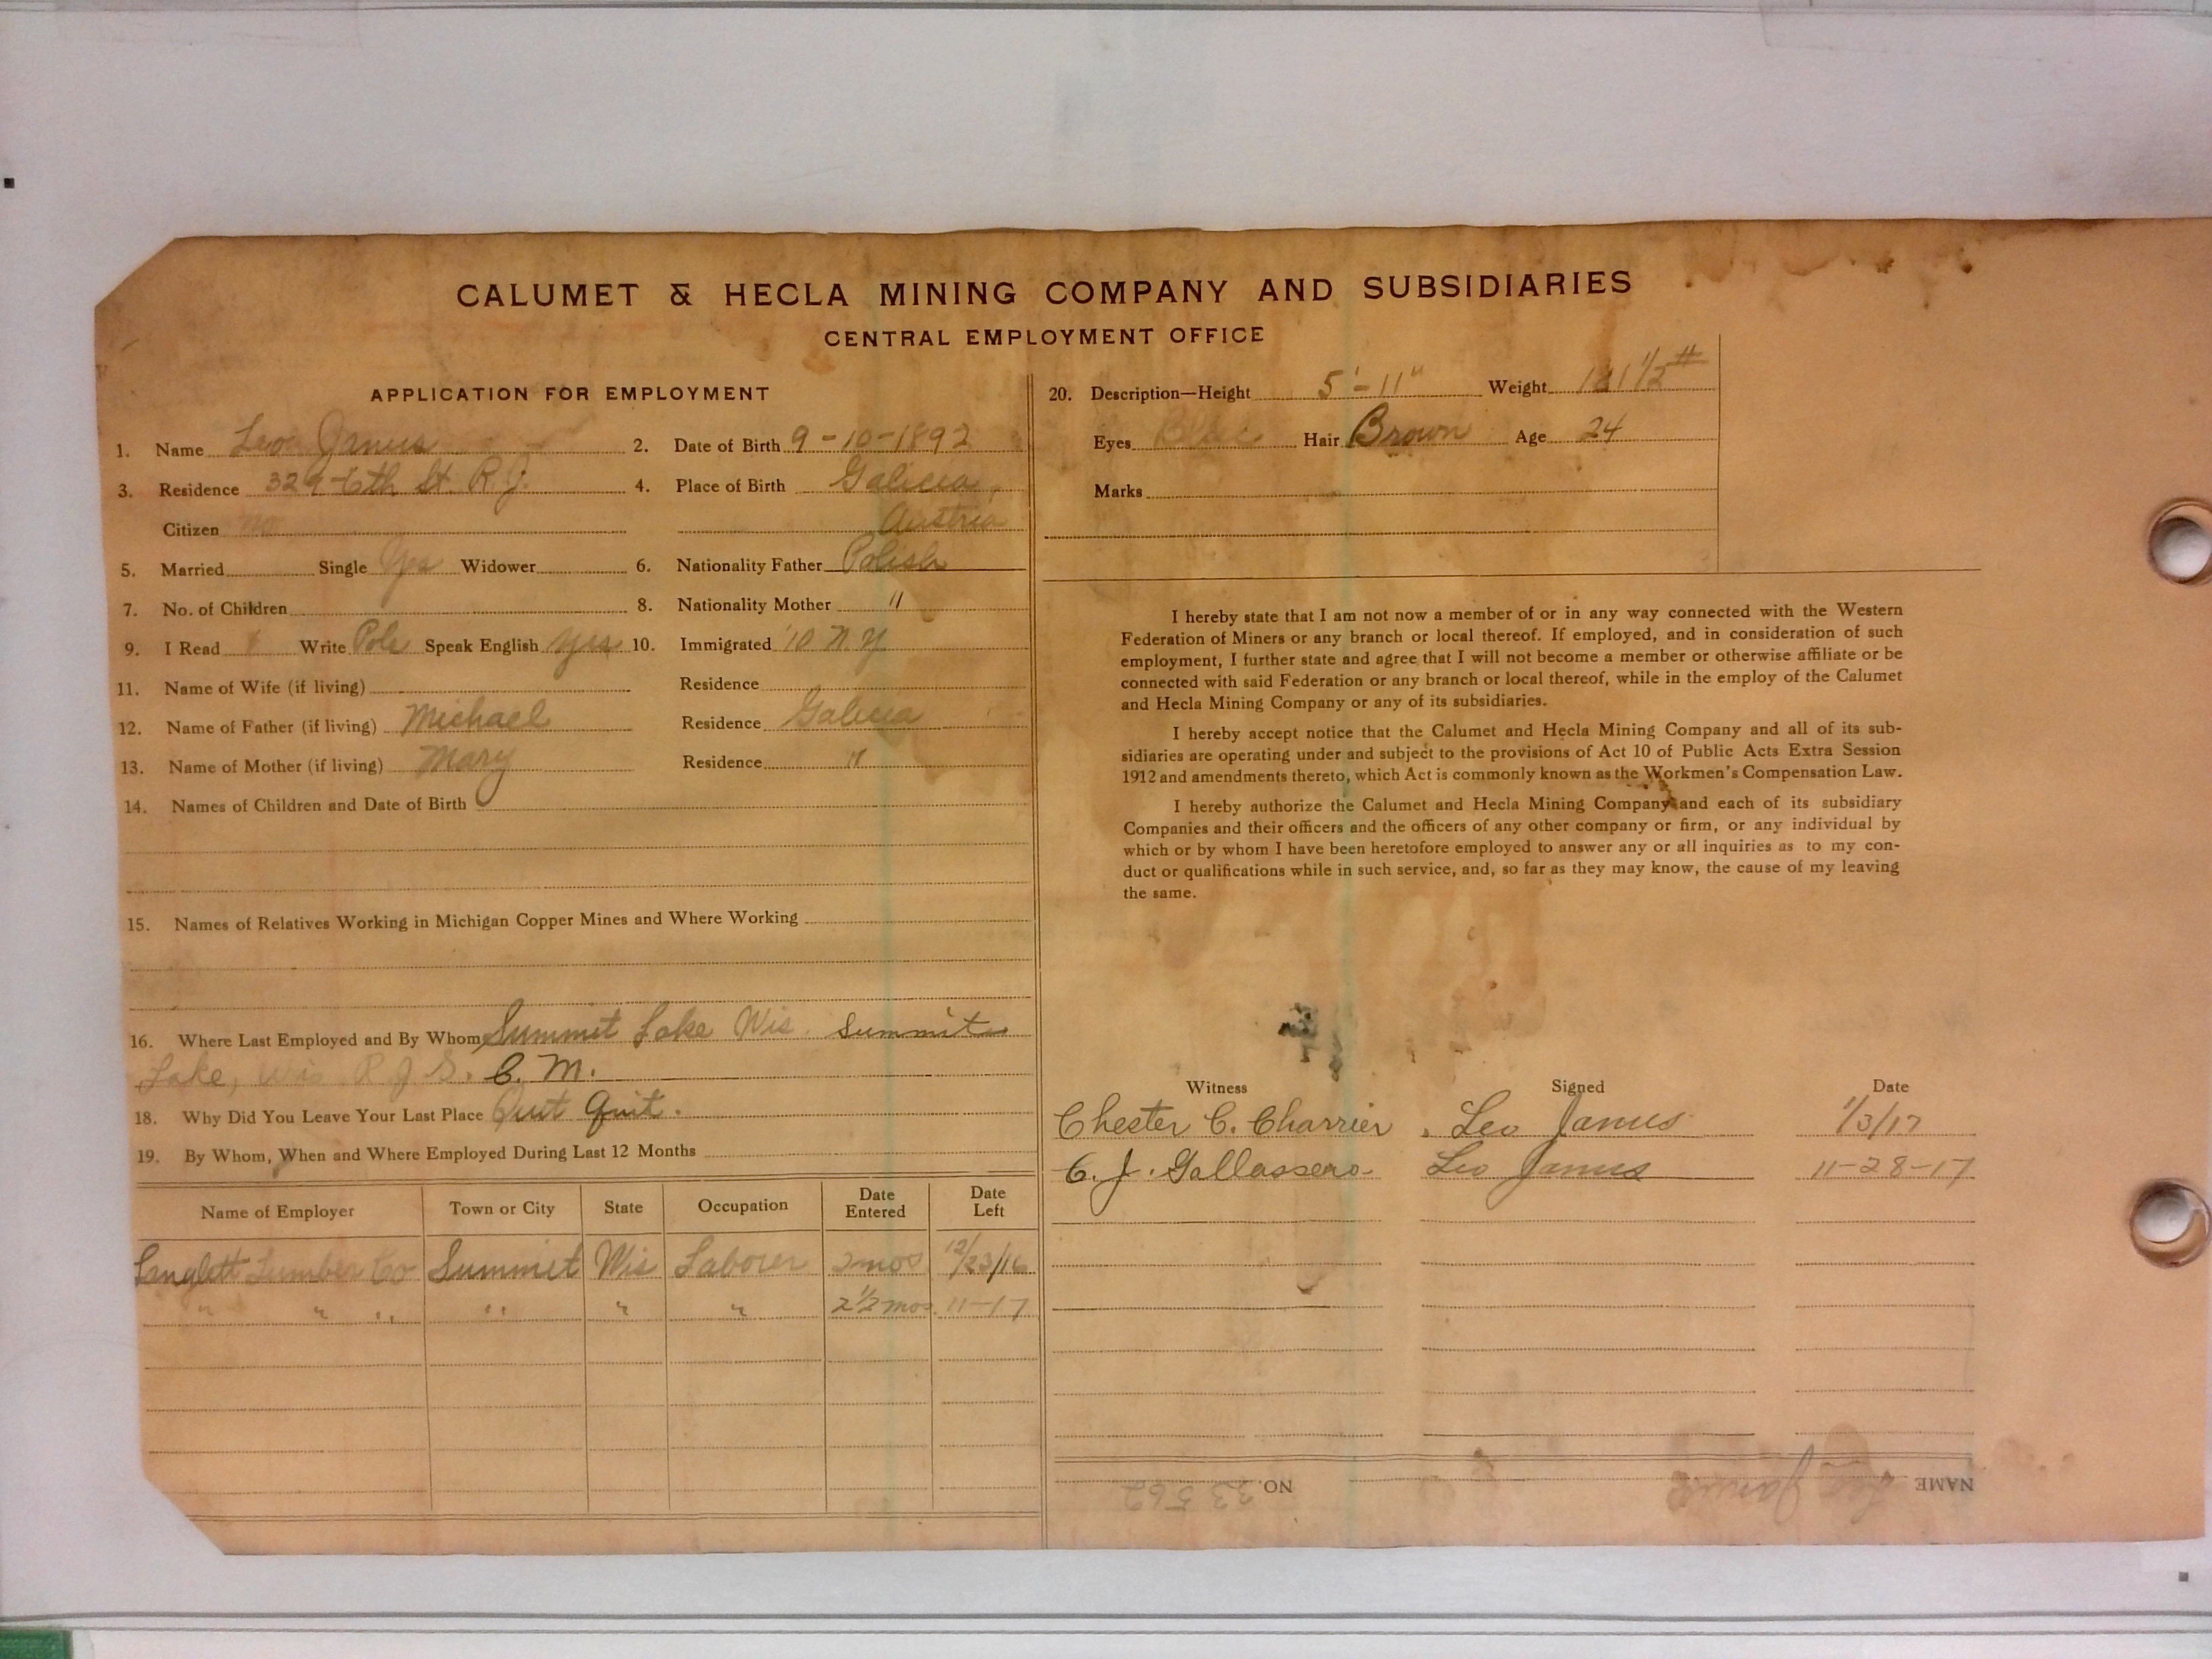 CALUMET & HECLA MINING COMPANY AND SUBSIDIARIES
CENTRAL EMPLOYMENT OFFICE
APPLICATION FOR EMPLOYMENT
1. Name Leo Janus 2. Date of Birth 9-10-1892
3. Residence 329-6th St. R.J. 4. Place of Birth Galicia,
Citizen no Austria
5. Married Single Yes Widower 6. Nationality Father Polish
7. No. of Children 8. Nationality Mother "
9. I Read Write Pole Speak English Yes 10. Immigrated '10 N.Y
11. Name of Wife (if living) Residence
12. Name of Father (if living) Michael Residence Galicia
13. Name of Mother (if living) Mary Residence "
14. Names of Children and Date of Birth
15. Names of Relatives Working in Michigan Copper Mines and Where Working
16. Where Last Employed and By Whom Summit Lake Wis. Summit
Lake, Wis R J S. C. M.
18. Why Did You Leave Your Last Place Quit Quit.
19. By Whom, When and Where Employed During Last 12 Months
Name of Employer Town or City State Occupation Date Entered Date Left
Lumber Co Summit Wis Laborer 2 mos 12/23/16
" " " " " " 2 1/2 mos. 11-17
20. Description—Height 5'-11" Weight 181 1/2 #
Eyes Hair Brown Age 24
Marks
I hereby state that I am not now a member of or in any way connected with the Western
Federation of Miners or any branch or local thereof. If employed, and in consideration of such
employment, I further state and agree that I will not become a member or otherwise affiliate or be
connected with said Federation or any branch or local thereof, while in the employ of the Calumet
and Hecla Mining Company or any of its subsidiaries.
I hereby accept notice that the Calumet and Hecla Mining Company and all of its sub-
sidiaries are operating under and subject to the provisions of Act 10 of Public Acts Extra Session
1912 and amendments thereto, which Act is commonly known as the Workmen's Compensation Law.
I hereby authorize the Calumet and Hecla Mining Company and each of its subsidiary
Companies and their officers and the officers of any other company or firm, or any individual by
which or by whom I have been heretofore employed to answer any or all inquiries as to my con-
duct or qualifications while in such service, and, so far as they may know, the cause of my leaving
the same.
Witness Signed Date
Chester C. Charrier Leo Janus 1/3/17
C. J. Gallassero Leo Janus 11-28-17
NAME Leo Janus NO. 33562